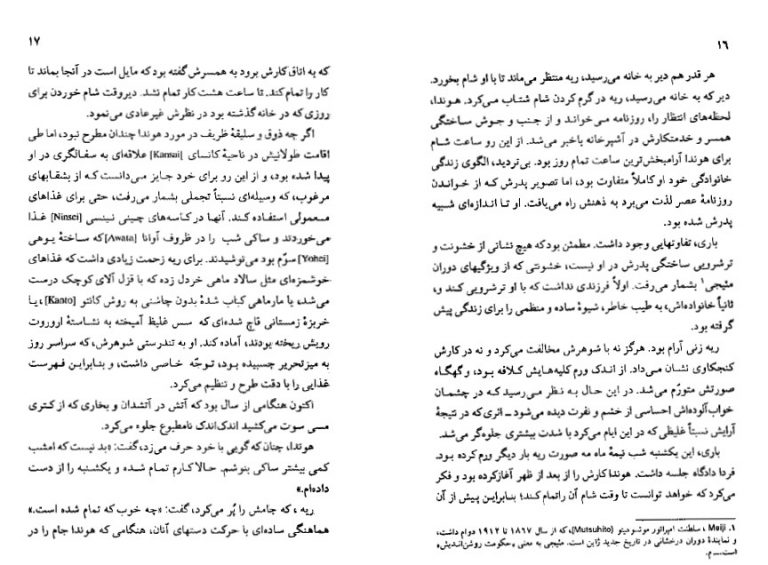 ۱۶
هر قدر هم دیر به خانه می‌رسید، ریه منتظر می‌ماند تا با او شام بخورد.
دیر که به خانه می‌رسید، ریه در گرم کردن شام شتاب می‌کرد. هوندا،
لحظه‌های انتظار را، روزنامه می‌خواند و از جنب و جوش ساختگی
همسر و خدمتکارش در آشپزخانه باخبر می‌شد. از این رو ساعت شام
برای هوندا آرامبخش‌ترین ساعت تمام روز بود. بی‌تردید، الگوی زندگی
خانوادگی خود او کاملاً متفاوت بود، اما تصویر پدرش که از خواندن
روزنامهٔ عصر لذت می‌برد به ذهنش راه می‌یافت. او تا اندازه‌ای شبیه
پدرش شده بود.
باری، تفاوتهایی وجود داشت. مطمئن بود که هیچ نشانی از خشونت و
ترشرویی ساختگی پدرش در او نیست، خشونتی که از ویژگیهای دوران
مئیجی۱ بشمار می‌رفت. اولاً فرزندی نداشت که با او ترشرویی کند و،
ثانیاً خانواده‌اش، به طیب خاطر، شیوهٔ ساده و منظمی را برای زندگی پیش
گرفته بود.
ریه زنی آرام بود. هرگز نه با شوهرش مخالفت می‌کرد و نه در کارش
کنجکاوی نشان می‌داد. از اندک ورم کلیه‌هایش کلافه بود، و گهگاه
صورتش متورّم می‌شد. در این حال به نظر می‌رسید که در چشمان
خواب‌آلوده‌اش احساسی از خشم و نفرت دیده می‌شود ــ اثری که در نتیجهٔ
آرایش نسبتاً غلیظی که در این ایام می‌کرد با شدت بیشتری جلوه‌گر می‌شد.
باری، این یکشنبه شب نیمهٔ ماه مه صورت ریه بار دیگر ورم کرده بود.
فردا دادگاه جلسه داشت. هوندا کارش را از بعد از ظهر آغاز کرده بود و فکر
می‌کرد که خواهد توانست تا وقت شام آن را تمام کند؛ بنابراین پیش از آن
۱. Meiji ، سلطنت امپراتور موتسوهیتو (Mutsuhito)، که از سال ۱۸۶۷ تا ۱۹۱۲ دوام داشت،
و نمایندهٔ دوران درخشانی در تاریخ جدید ژاپن است. مئیجی به معنی «حکومت روشن‌اندیش»
است. ــ م.
۱۷
که به اتاق کارش برود به همسرش گفته بود که مایل است در آنجا بماند تا
کار را تمام کند. تا ساعت هشت کار تمام نشد. دیروقت شام خوردن برای
روزی که در خانه گذشته بود در نظرش غیرعادی می‌نمود.
اگر چه ذوق و سلیقهٔ ظریف در مورد هوندا چندان مطرح نبود، اما طی
اقامت طولانیش در ناحیهٔ کانسای [Kansai] علاقه‌ای به سفالگری در او
پیدا شده بود، و از این رو برای خود جایز می‌دانست که از بشقابهای
مرغوب، که وسیله‌ای نسبتاً تجملی بشمار می‌رفت، حتی برای غذاهای
معمولی استفاده کند. آنها در کاسه‌های چینی نینسی [Ninsei] غذا
می‌خوردند و ساکی شب را در ظروف آواتا [Awata] که ساختهٔ یوهی
[Yohei] سوّم بود می‌نوشیدند. برای ریه زحمت زیادی داشت که غذاهای
خوشمزه‌ای مثل سالاد ماهی خردل زده که با قزل آلای کوچک درست
می‌شد، یا مارماهی کباب شدهٔ بدون چاشنی به روش کانتو [Kanto]، یا
خربزهٔ زمستانی قاچ شده‌ای که سس غلیظ آمیخته به نشاستهٔ اروروت
رویش ریخته بودند، آماده کند. او به تندرستی شوهرش، که سراسر روز
به میزتحریر چسبیده بود، توجّه خاصی داشت، و بنابراین فهرست
غذایی را با دقت طرح و تنظیم می‌کرد.
اکنون هنگامی از سال بود که آتش در آتشدان و بخاری که از کتری
مسی سوت می‌کشید اندک‌اندک نامطبوع جلوه می‌کرد.
هوندا، چنان که گویی با خود حرف می‌زد، گفت: «بد نیست که امشب
کمی بیشتر ساکی بنوشم. حالا کارم تمام شده و یکشنبه را از دست
داده‌ام.»
ریه ، که جامش را پُر می‌کرد، گفت: «چه خوب که تمام شده است.»
هماهنگی ساده‌ای با حرکت دستهای آنان، هنگامی که هوندا جام را در